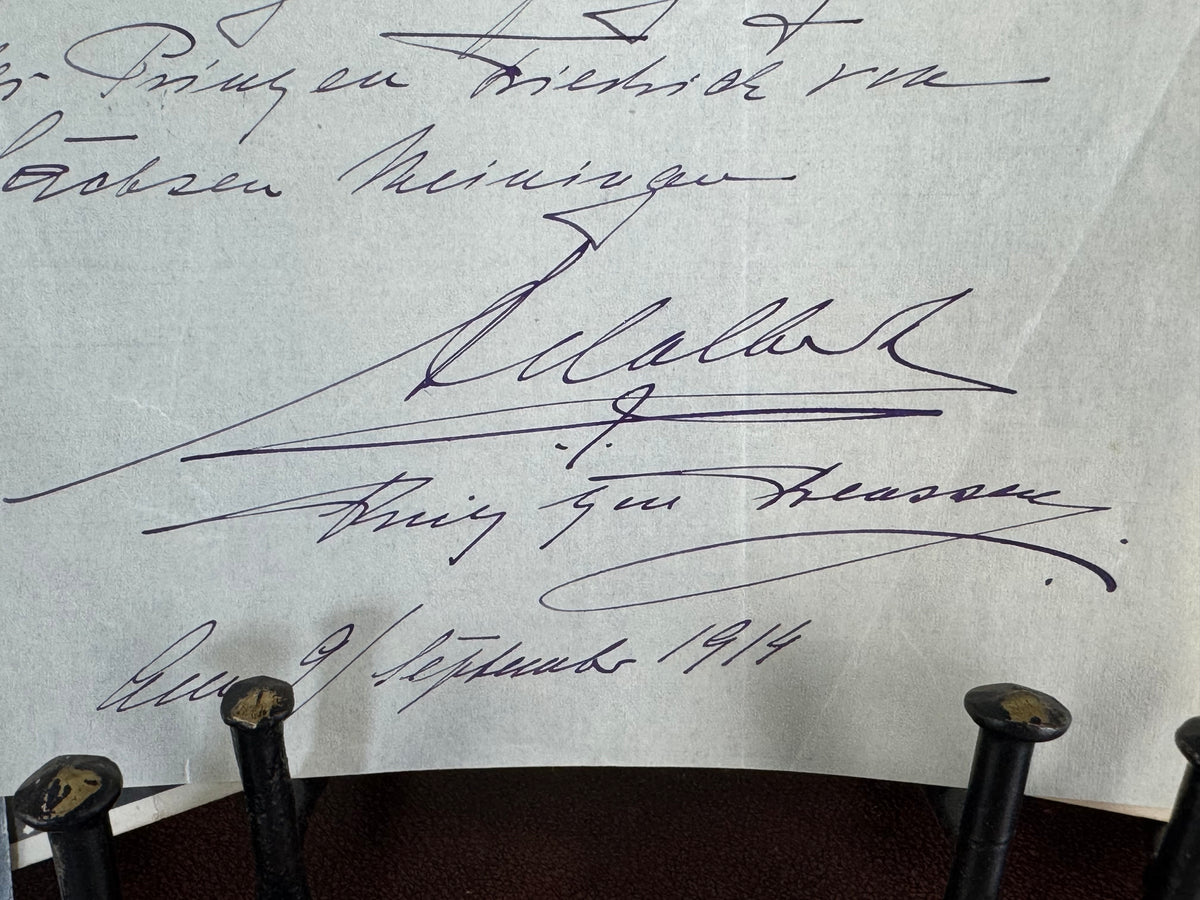 Prinzen Friedrich von
Sachsen Meiningen
Adalbert
Prinz von Preussen.
9/ September 1914